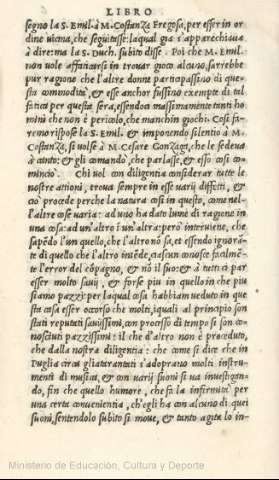 LIBRO
segno la S. Emil. à M. Costanza Fregosa, per esser in or
dine uicina, che seguitasse: laqual già s'apparecchiaua
à dire: ma la S. Duch. subito disse. Poi che M. Emil.
non uole affaticarsi in trouar gioco alcuno, sarrebbe
pur ragione che l'altre donne participassino di que-
sta commodità, & esse anchor fussino exempte di tal
fatica per questa sera, essendoci massimamente tanti ho
mini che non è pericolo, che manchin giochi. Cosi fa-
remo rispose la S. Emil. & imponendo silentio à M.
Costanza, si uolse à M. Cesare Gonzaga, che le sedeua
à canto: & gli comandò, che parlasse, & esso cosi co
minciò. Chi uol con diligentia considerar tutte le
nostre attioni, troua sempre in esse varij diffetti, &
ciò procede perche la natura cosi in questo, come nel-
l'altre cose uaria: ad uno ha dato lume di ragione in
una cosa: ad un'altro ĩ un'altra: però interuiene, che
sapẽdo l'un quello, che l'altro nõ sa, et essendo ignorã-
te di quello che l'altro intẽde, ciascun conosce facilmẽ-
te l'error del cõpagno, & nõ il suo: & à tutti ci par
esser molto sauij, & forse piu in quello in che piu
siamo pazzi: per laqual cosa habbiam ueduto in que
sta casa esser occorso che molti, iquali al principio son
stati reputati sauijssimi, con processo di tempo si son co
nosciuti pazzissimi: il che d'altro non è proceduto,
che dalla nostra diligentia: che come si dice che in
Puglia circa gli atarantati s'adoprano molti instru-
menti di musica, & con varij suoni si ua inuestigan-
do, fin che quello humore, che fa la infirmità per
una certa conuenientia, ch'egli ha con alcuno di quei
suoni, sentendolo subito si moue, & tanto agita lo in-
Ministerio de Educación, Cultura y Deporte